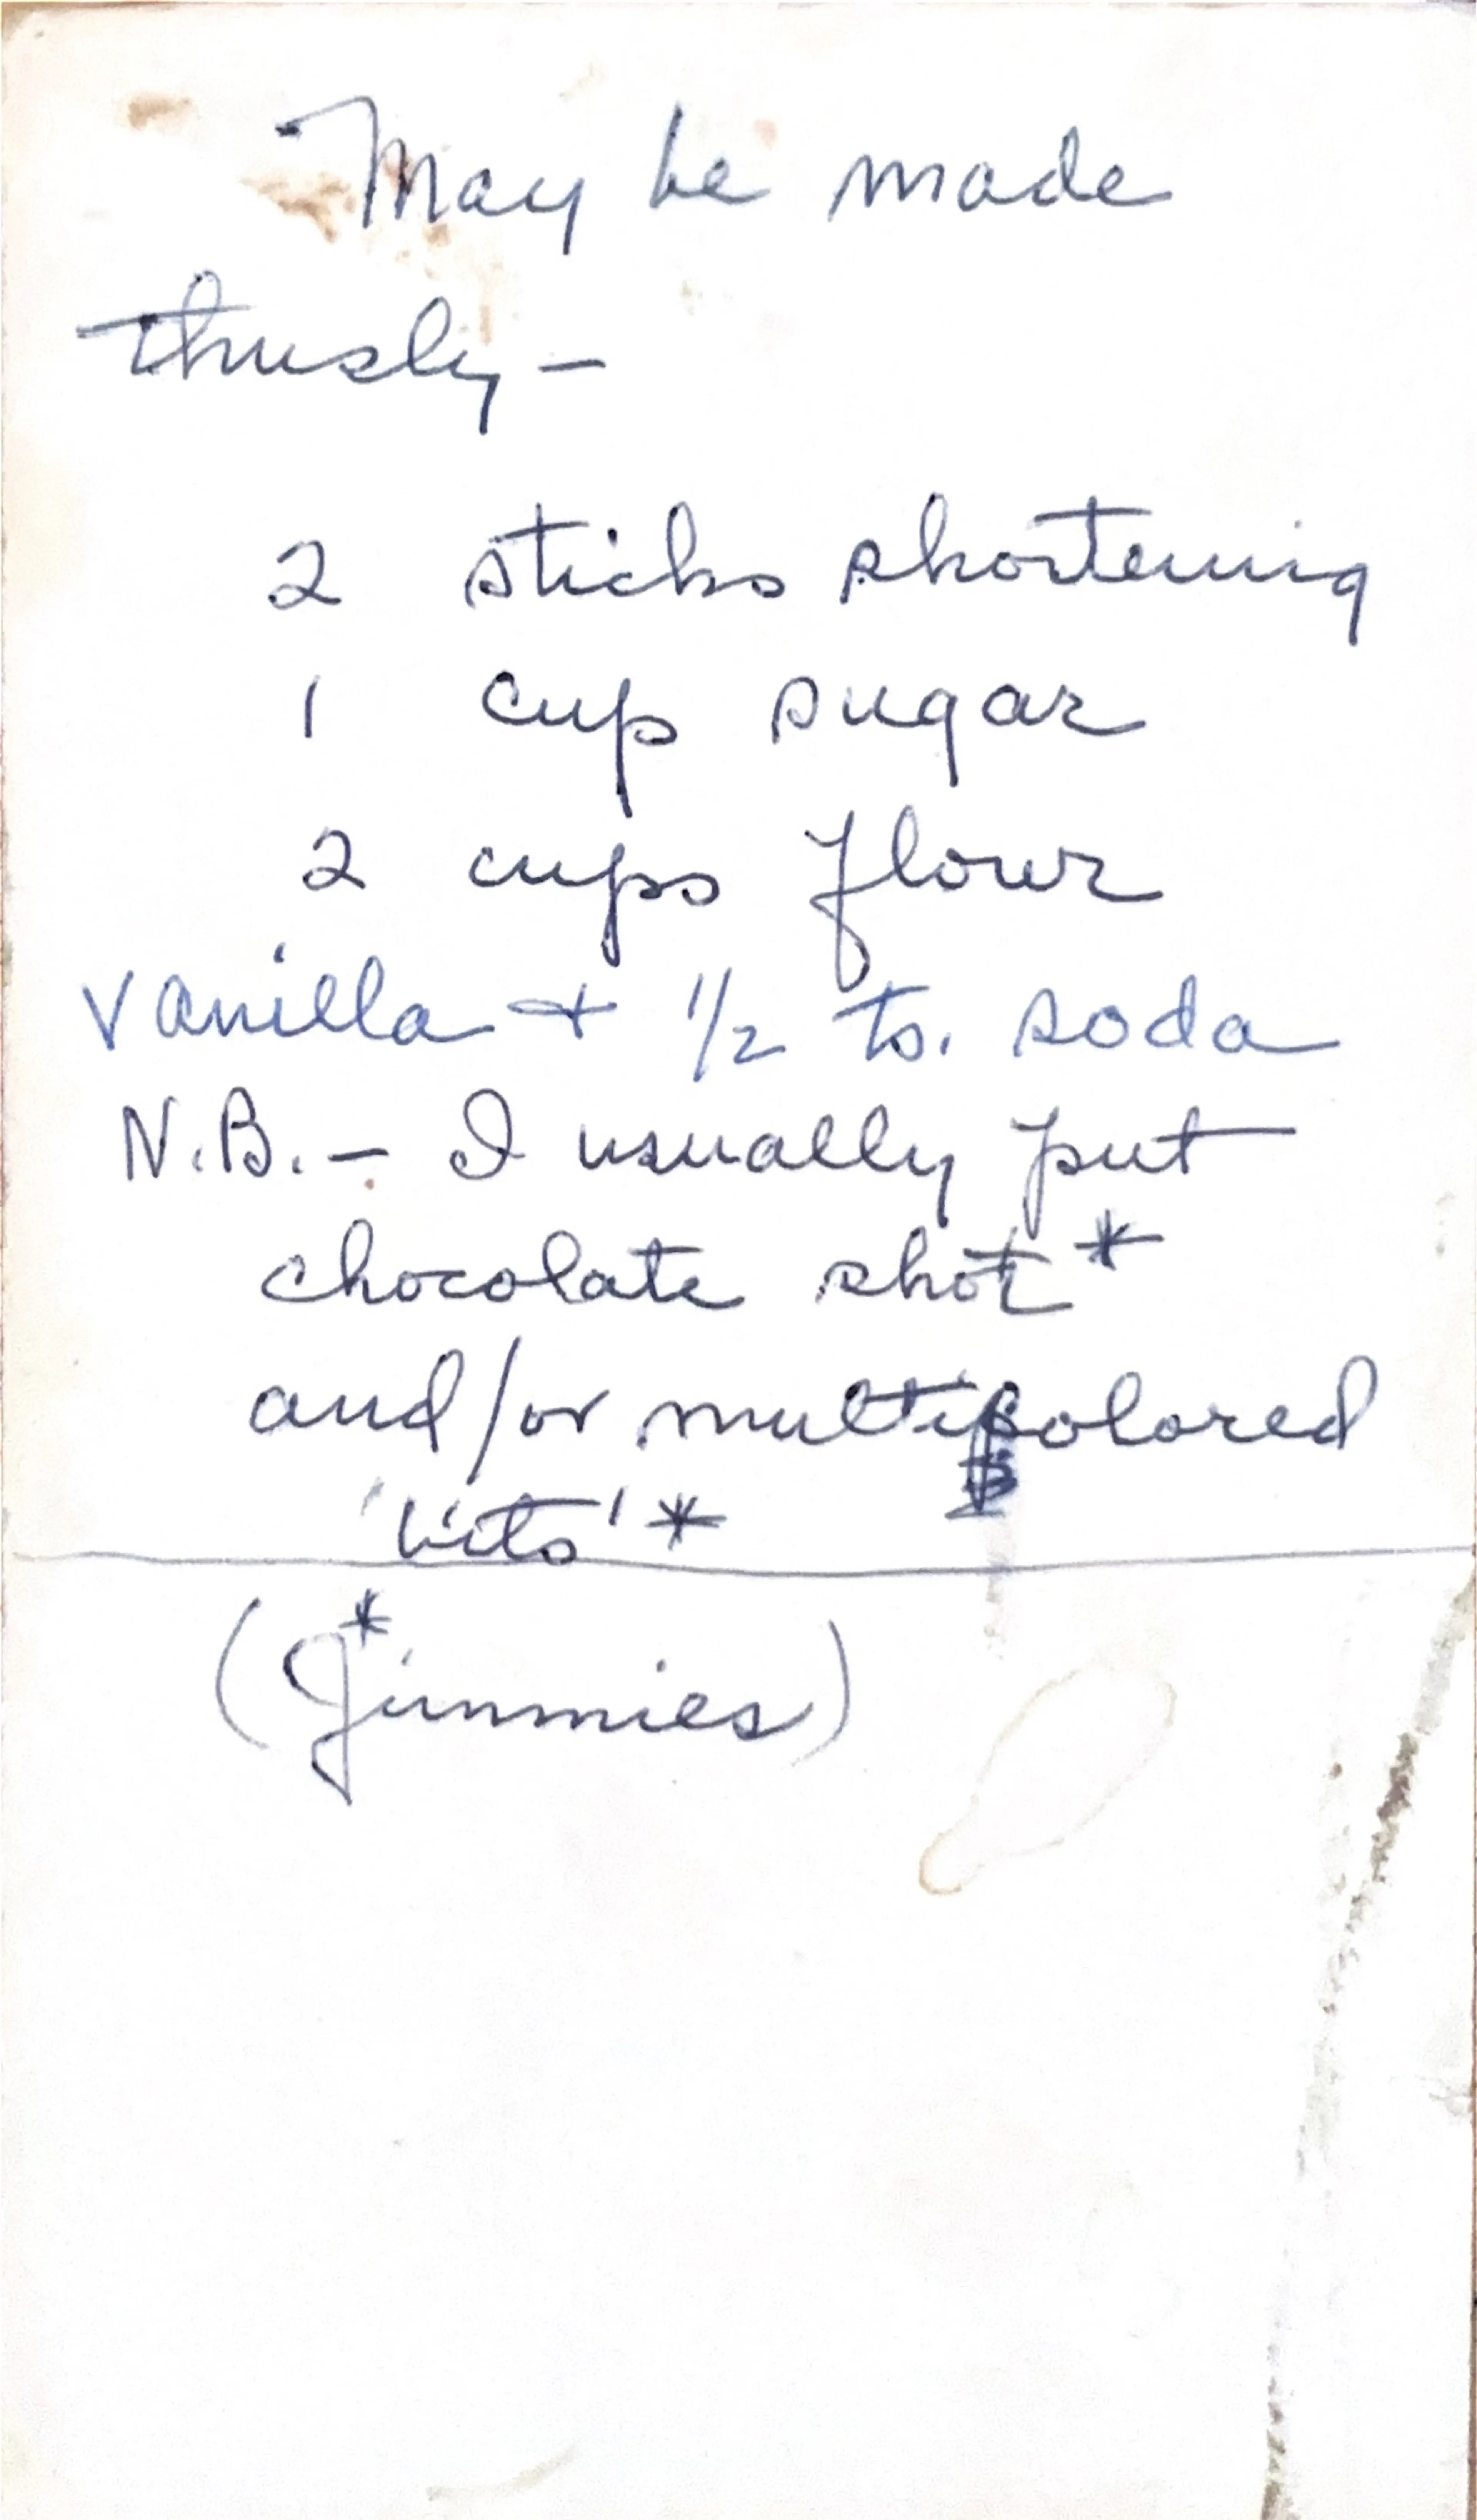 May be made
thusly -
2 sticks shortening
1 cup sugar
2 cups flour
Vanilla + 1/2 ts. soda
N.B. - I usually put
chocolate shot*
and/or multicolored
'bits'*
(*Jimmies)